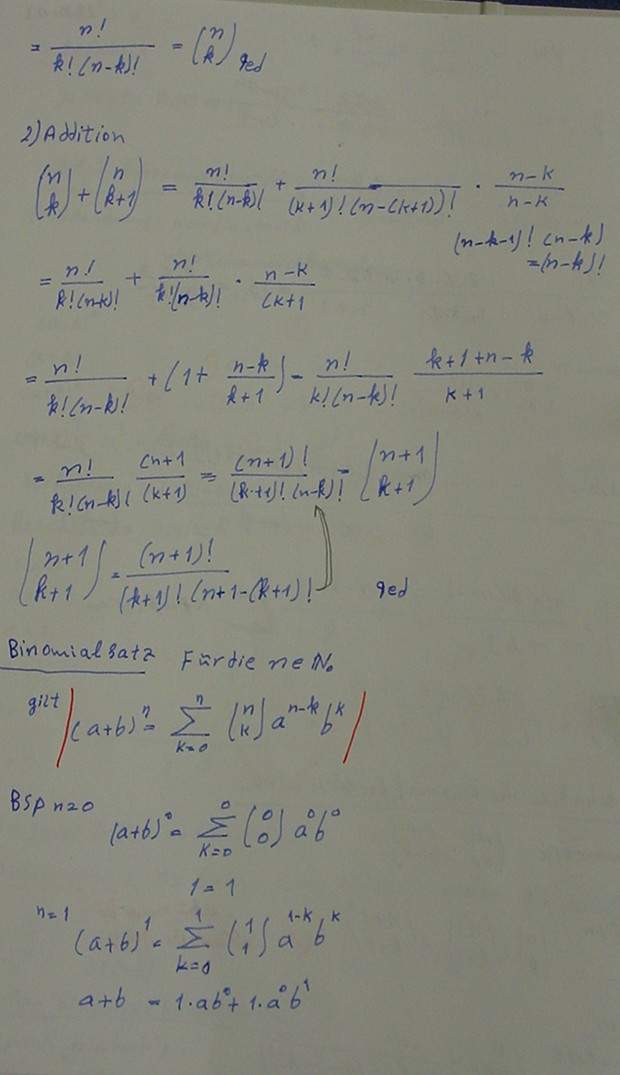 = n!/(k!(n-k)!) = (n k) qed
2) Addition
(n k) + (n k+1) = n!/(k!(n-k)! + n!/((k+1)!(n-(k+1))! · (n-k)/(n-k)
(n-k-1)! (n-k)
= (n-k)!
= n!/(k!(n-k)!) + n!/(k!(n-k)!) · (n-k)/(k+1
= n!/(k!(n-k)!) + (1 + (n-k)/(k+1)) = n!/(k!(n-k)!) (k+1+n-k)/(k+1)
= n!/(k!(n-k)!) (n+1/(k+1) = (n+1)!/((k+1)!(n-k)!) = (n+1 k+1)
(n+1 k+1) = (n+1)!/((k+1)!(n+1-(k+1)!) qed
Binomialsatz Für die n∈ℕ₀
gilt (a+b)^n = ∑_{k=0}^{n} (n k) a^{n-k} b^k
BSP n=0 (a+b)^0 = ∑_{k=0}^{0} (0 0) a^0 b^0
1 = 1
n=1 (a+b)^1 = ∑_{k=0}^{1} (1 1) a^{1-k} b^k
a+b = 1·ab^0 + 1·a^0 b^1